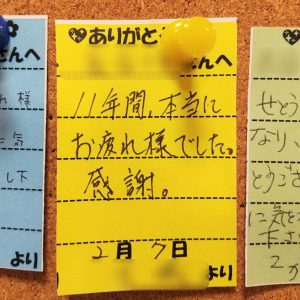 ありがと
さんへ
11年間、本当に
お疲れ様でした。
感謝。
2月7日
より
さんへ
れ様
気
し下
より
せとう
なり、
とうござ
に気を
下さ
2か